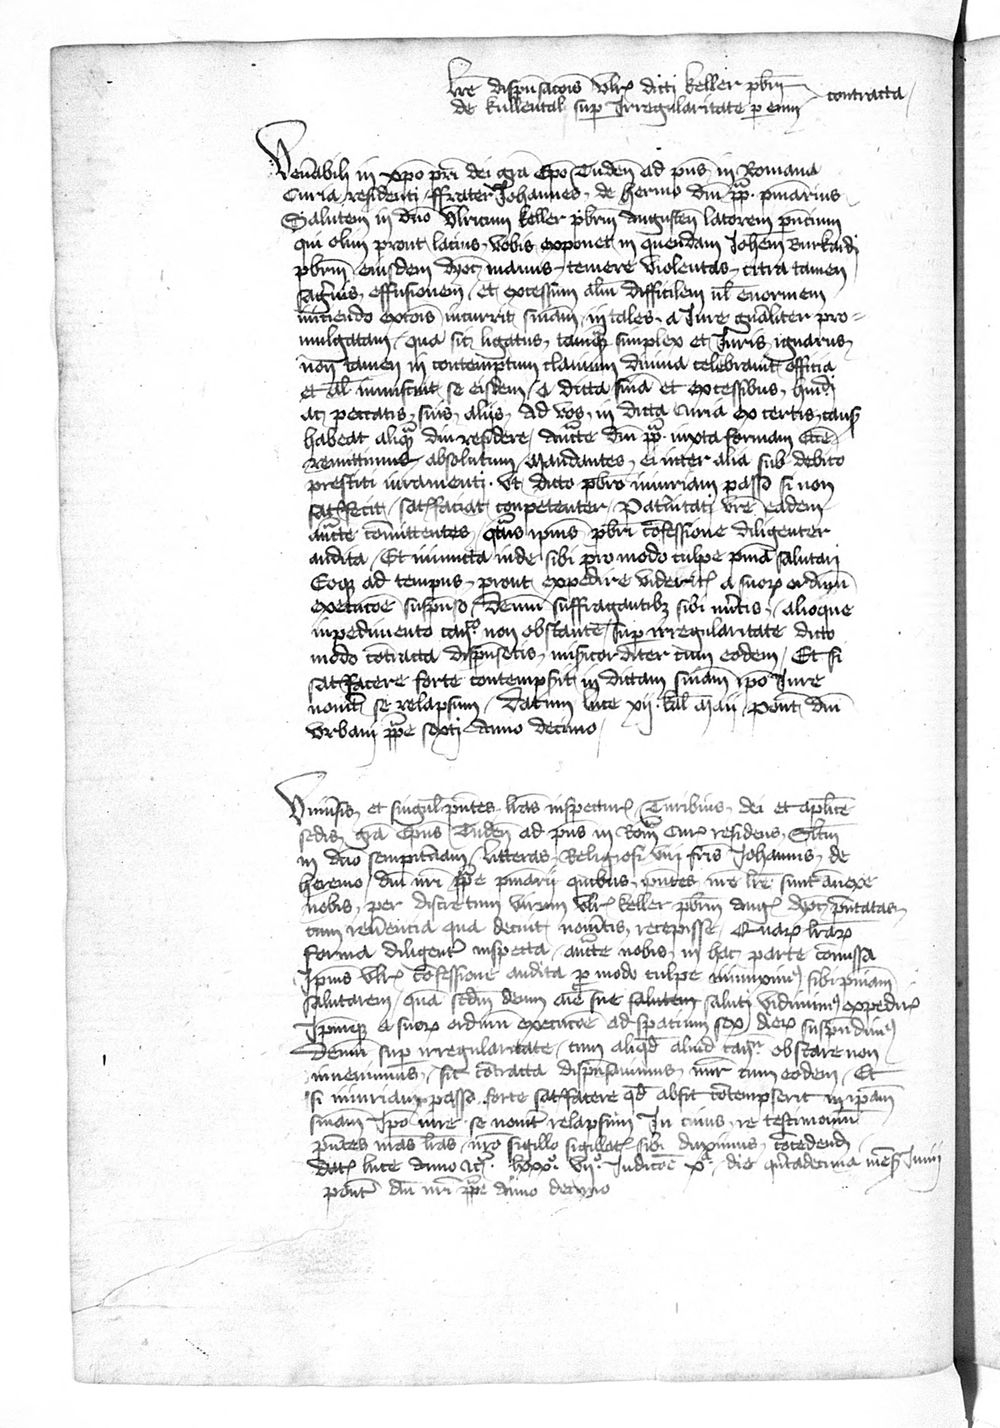 Lre dispensacois Ulr dicti keller pbri
de kullental sup Irregularitate p eum contracta
Venabili in xpo pri dei gra Epo Tuden ad pns in Romana
Curia residenti ffrater Johannes de hermo dni pp pmarius
Salutem in dno Ulricum keller pbrm Augusten latorem pntium
qui olim prout lacius vobis exponet in quendam Johem Burkardi
pbrm eiusdem dyoc manus temere violentas citra tamen
sagwis effusionem et excessum alm difficilem ul enormem
iniciendo excois incurrit sniam in tales a Iure gnaliter pro-
mulgatam qua sic ligatus tamq simplex et Iuris ignarus
non tamen in contemptum clavium divina celebravit officia
et al inmiscuit se eisdem A dicta snia et excessibus huiusmodi
ac peccatis suis aliis ad vos in dicta Curia ex certis causis
habeat aliq diu residere aucte dni pp iuxta formam eccie
remittimus absolutum Mandantes ei inter alia sub debito
prestiti iuramenti Ut dicto pbro iniuriam passo si non
satisfecit satisfaciat conpetenter Patnitati vre eadem
aucte comittentes qtus ipsius pbri cofessione diligenter
audita Et iniuncta inde sibi pro modo culpe pnia salutari
Eoq ad tempus prout expedire videritis a suor ordinum
execucoe suspenso Demum suffragantibz sibi mitis alioque
inpedimento cano non obstante sup irregularitate dicto
modo cotracta dispensetis misicorditer cum eodem Et si
satisfacere forte contempserit in dictam sniam ipo Iure
noverit se relapsum Datum luce xii kl Maii pont dni
Urbani ppe sexti Anno decimo
Univsis et singul pntes lras inspectur Turibius dei et aplice
sedis gra Epus Tuden ad pns in Roma Cur residens Salm
in dno sempitnam Litteras Religiosi viri fris Johannis de
heremo dni nri ppe pmarii quibus pntes nre lre sunt anexe
nobis per discretum virum Ulr keller pbrm Aug dyoc pntatas
cum revencia qua decuit noveritis recepisse Quar lrar
forma diligent inspecta aucte nobis in hac parte comissa
Ipius Ulr cofessione audita p modo culpe iniunximus sibi pniam
salutarem qua scdm deum aie sue salutem saluti vidimus expedire
Ipmq a suor ordinum execucoe ad spatium sex dier suspendimus
Demum sup irregularitate cum aliqd aliud cano obstare non
invenimus sic cotracta dispensavimus mir cum eodem Et
si iniuriam passo forte satisfacere qd absit cotempserit in ipam
sniam Ipo iure se noverit relapsum In cuius re testimonium
pntes nras lras nro sigillo sigillat sibi duximus cocedendas
Dat luce Anno lxxx vii Indicoe x die qntadecima mens Iunii
pont dni nri ppe Anno decimo